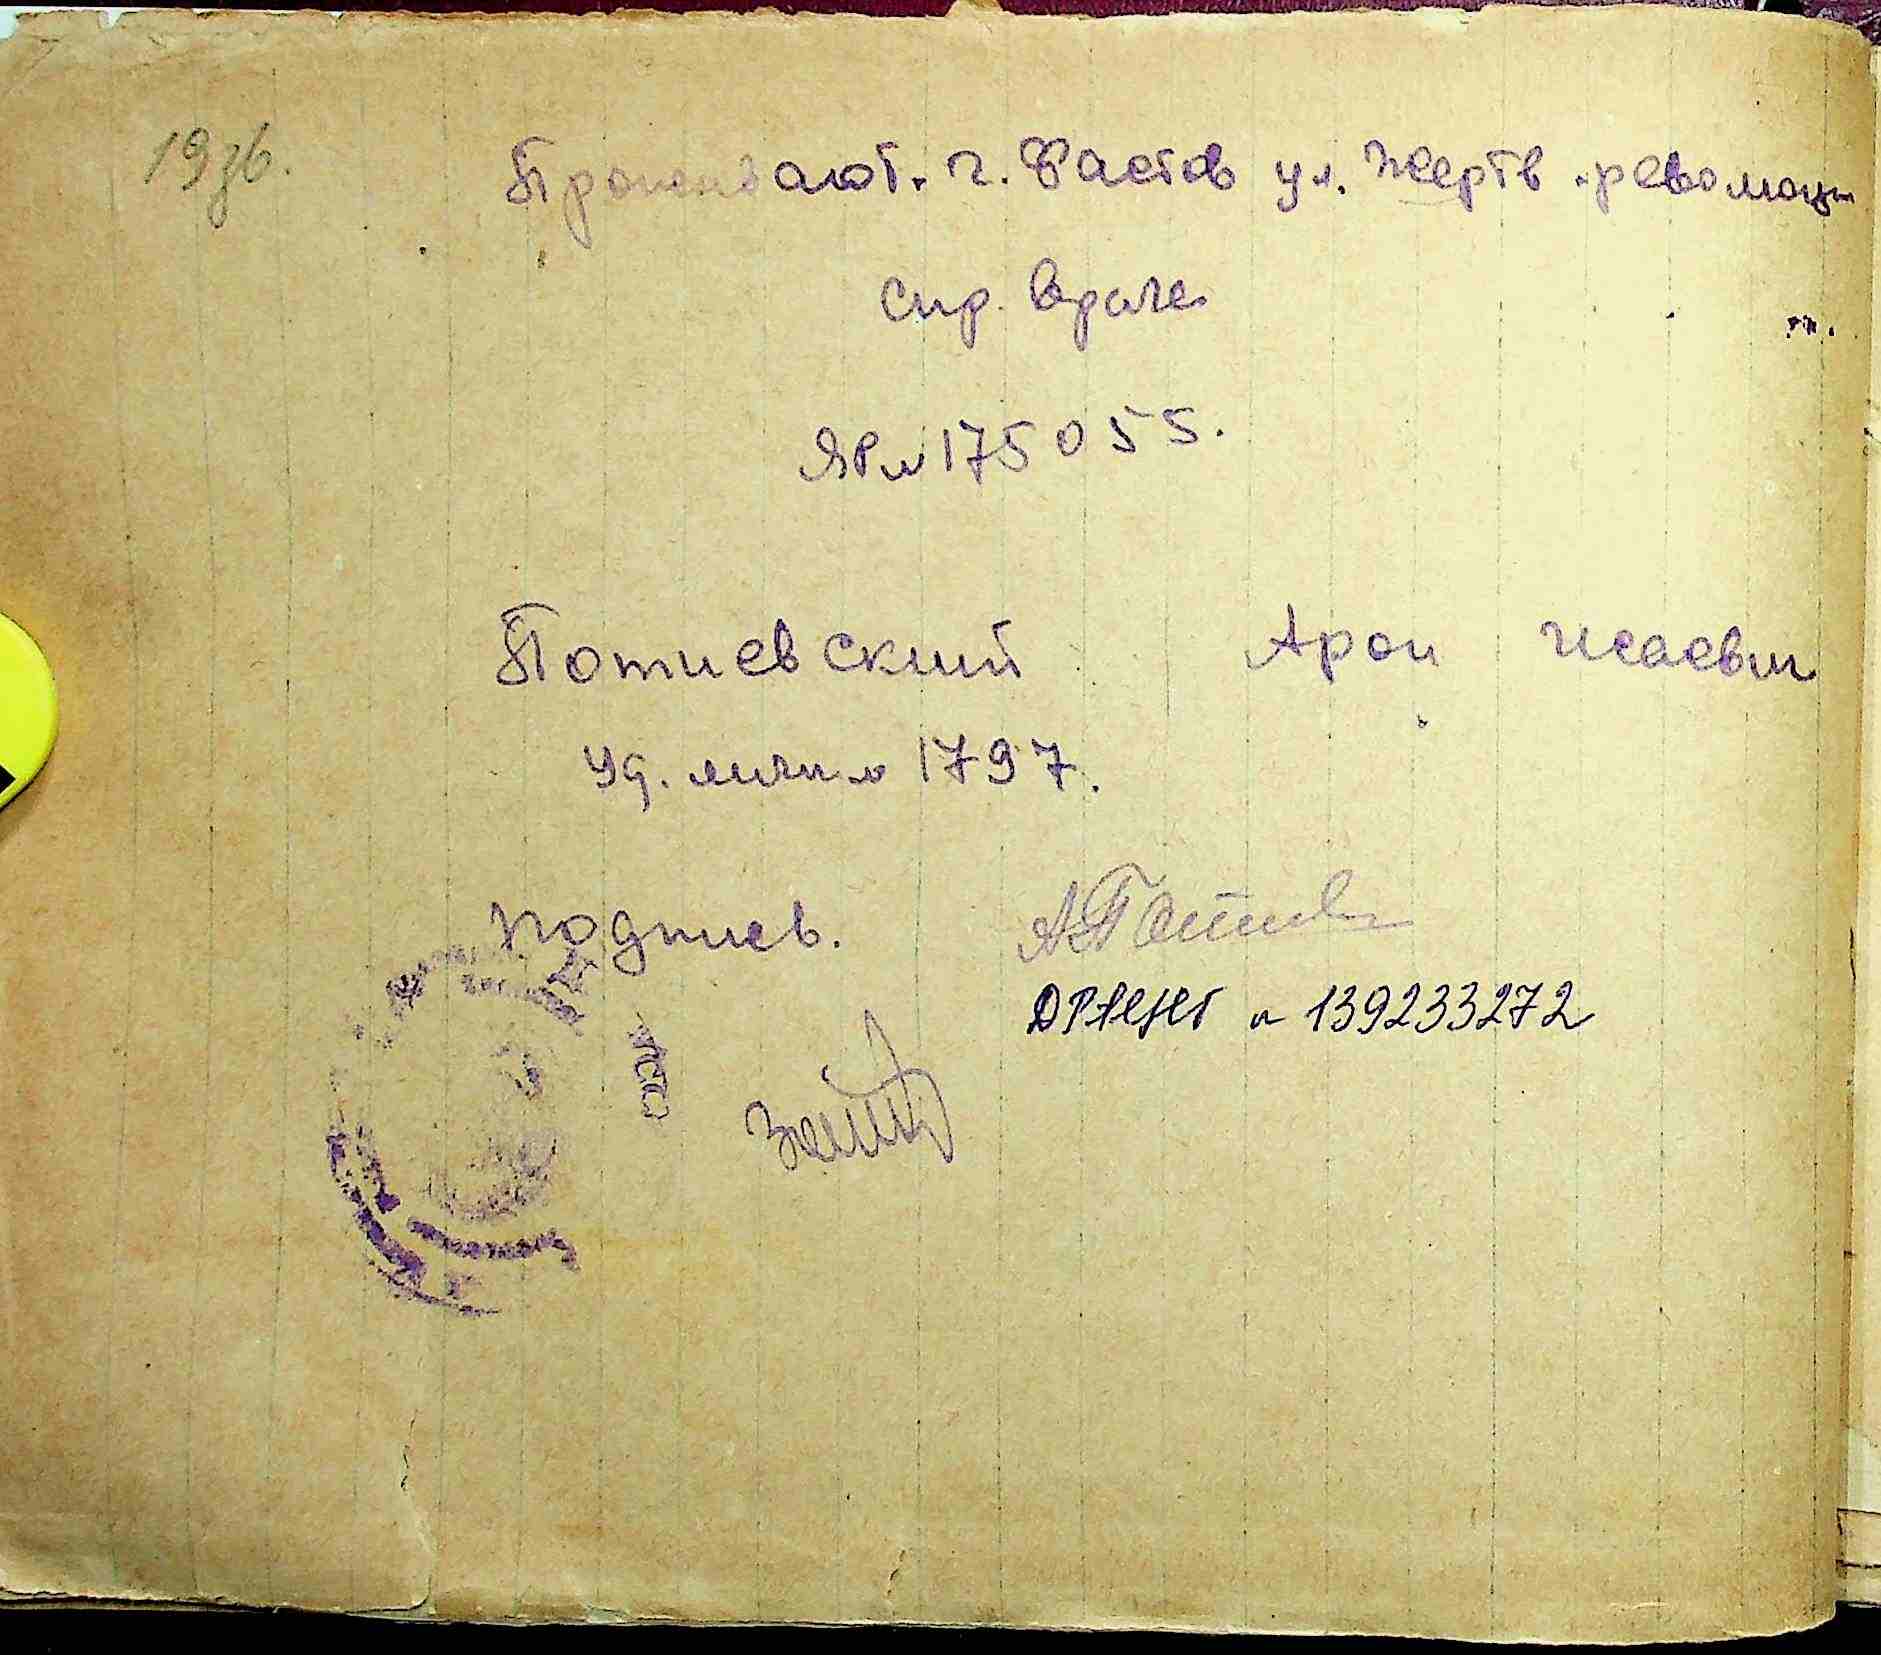 193б.
Проживают. г. Фастов ул. Жертв революци
спр. врача
ЯР № 175055.
Потиевский Арон Исаевич
уд. личн № 1797.
подпись. А Потиев
№ 139233272